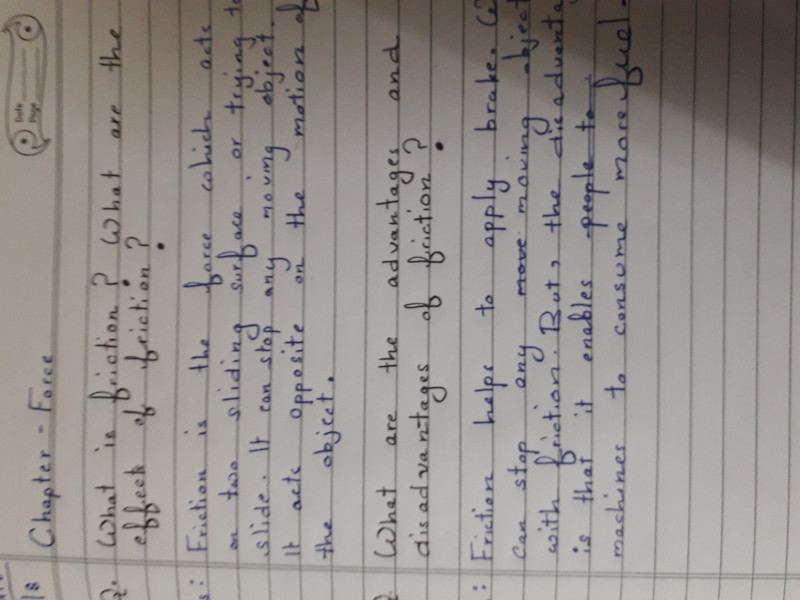 Date
Page
Chapter - Force
What is friction? What are the
effect of friction?
Friction is the force which acts
on two sliding surface or trying to
slide. It can stop any moving object.
It acts opposite on the motion of
the object.
What are the advantages and
disadvantages of friction?
: Friction helps to apply brake.
can stop any move moving object
with friction. But, the disadvanta
is that it enables people to
machines to consume more fuel.